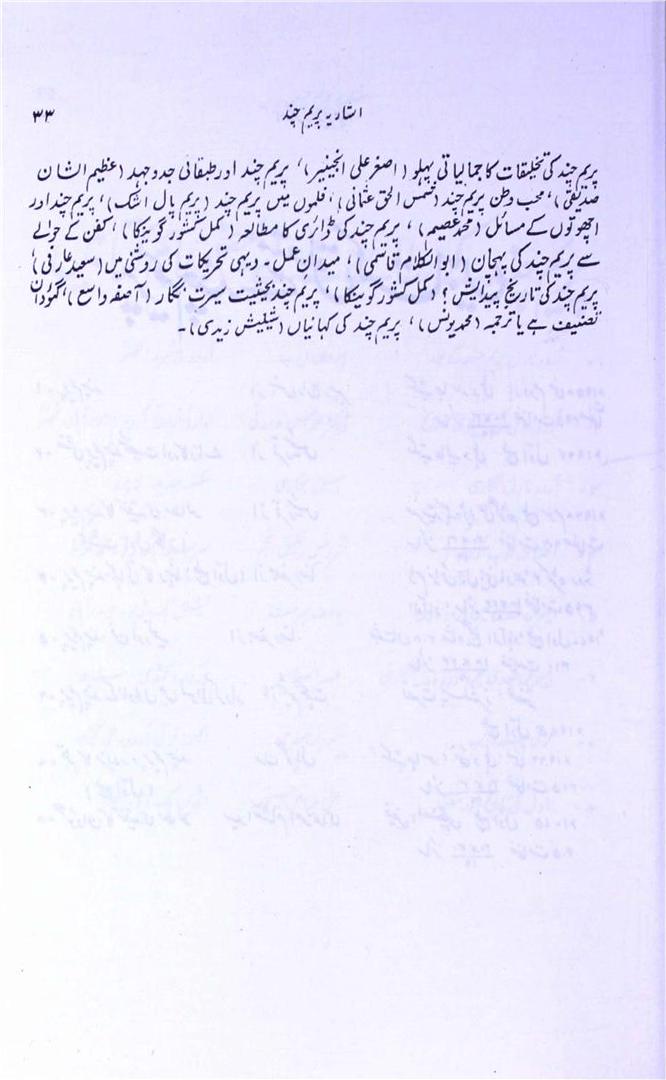 اشاریہ پریم چند
۳۳
پریم چند کی تخلیقات کا جمالیاتی پہلو (اصغر علی انجینیر)، پریم چند اور طبقاتی جدوجہد (عظیم الشان
صدیقی)، محب وطن پریم چند (شمس الحق عثمانی)، فلموں میں پریم چند (پریم پال اشک)، پریم چند اور
اچھوتوں کے مسائل (محمد عصیم)، پریم چند کی ڈائری کا مطالعہ (کمل کشور گوینکا)، کفن کے حوالے
سے پریم چند کی پہچان (ابوالکلام قاسمی)، میدان عمل۔ دیہی تحریکات کی روشنی میں (سعید عارفی)
پریم چند کی تاریخ پیدایش؟ (کمل کشور گوینکا)، پریم چند بحیثیت سیرت نگار (آصفہ واسع)، گئودان
تصنیف ہے یا ترجمہ (محمد یونس)، پریم چند کی کہانیاں (شیلیش زیدی)۔